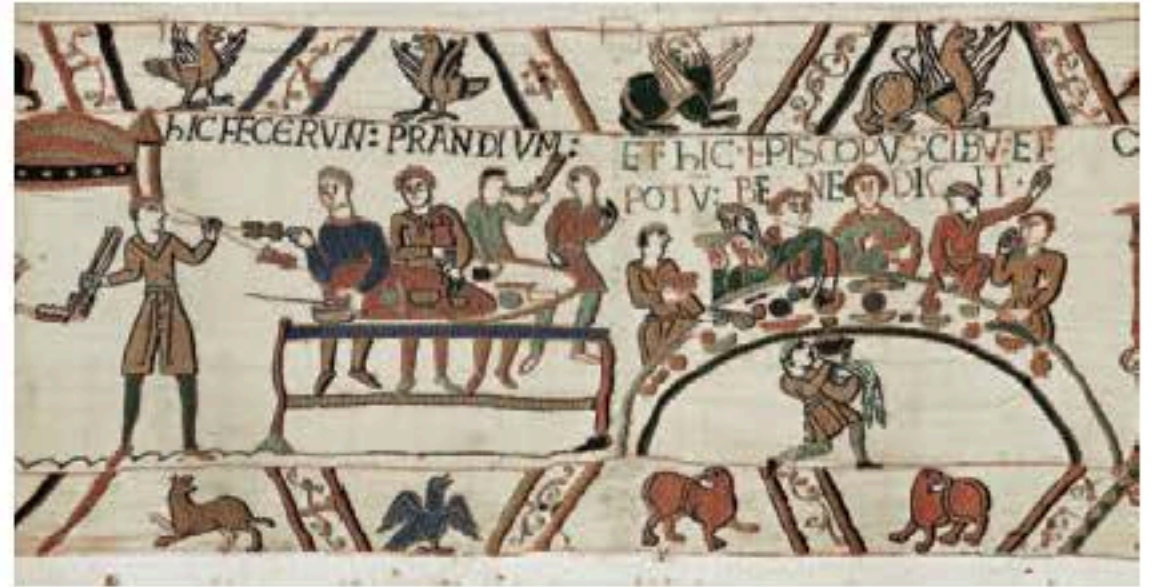 hIC FECERVN: PRANDIVM:
ET·hIC·EPISCOPVS:CIBV:ET·
POTV: BE NE DIC IT·